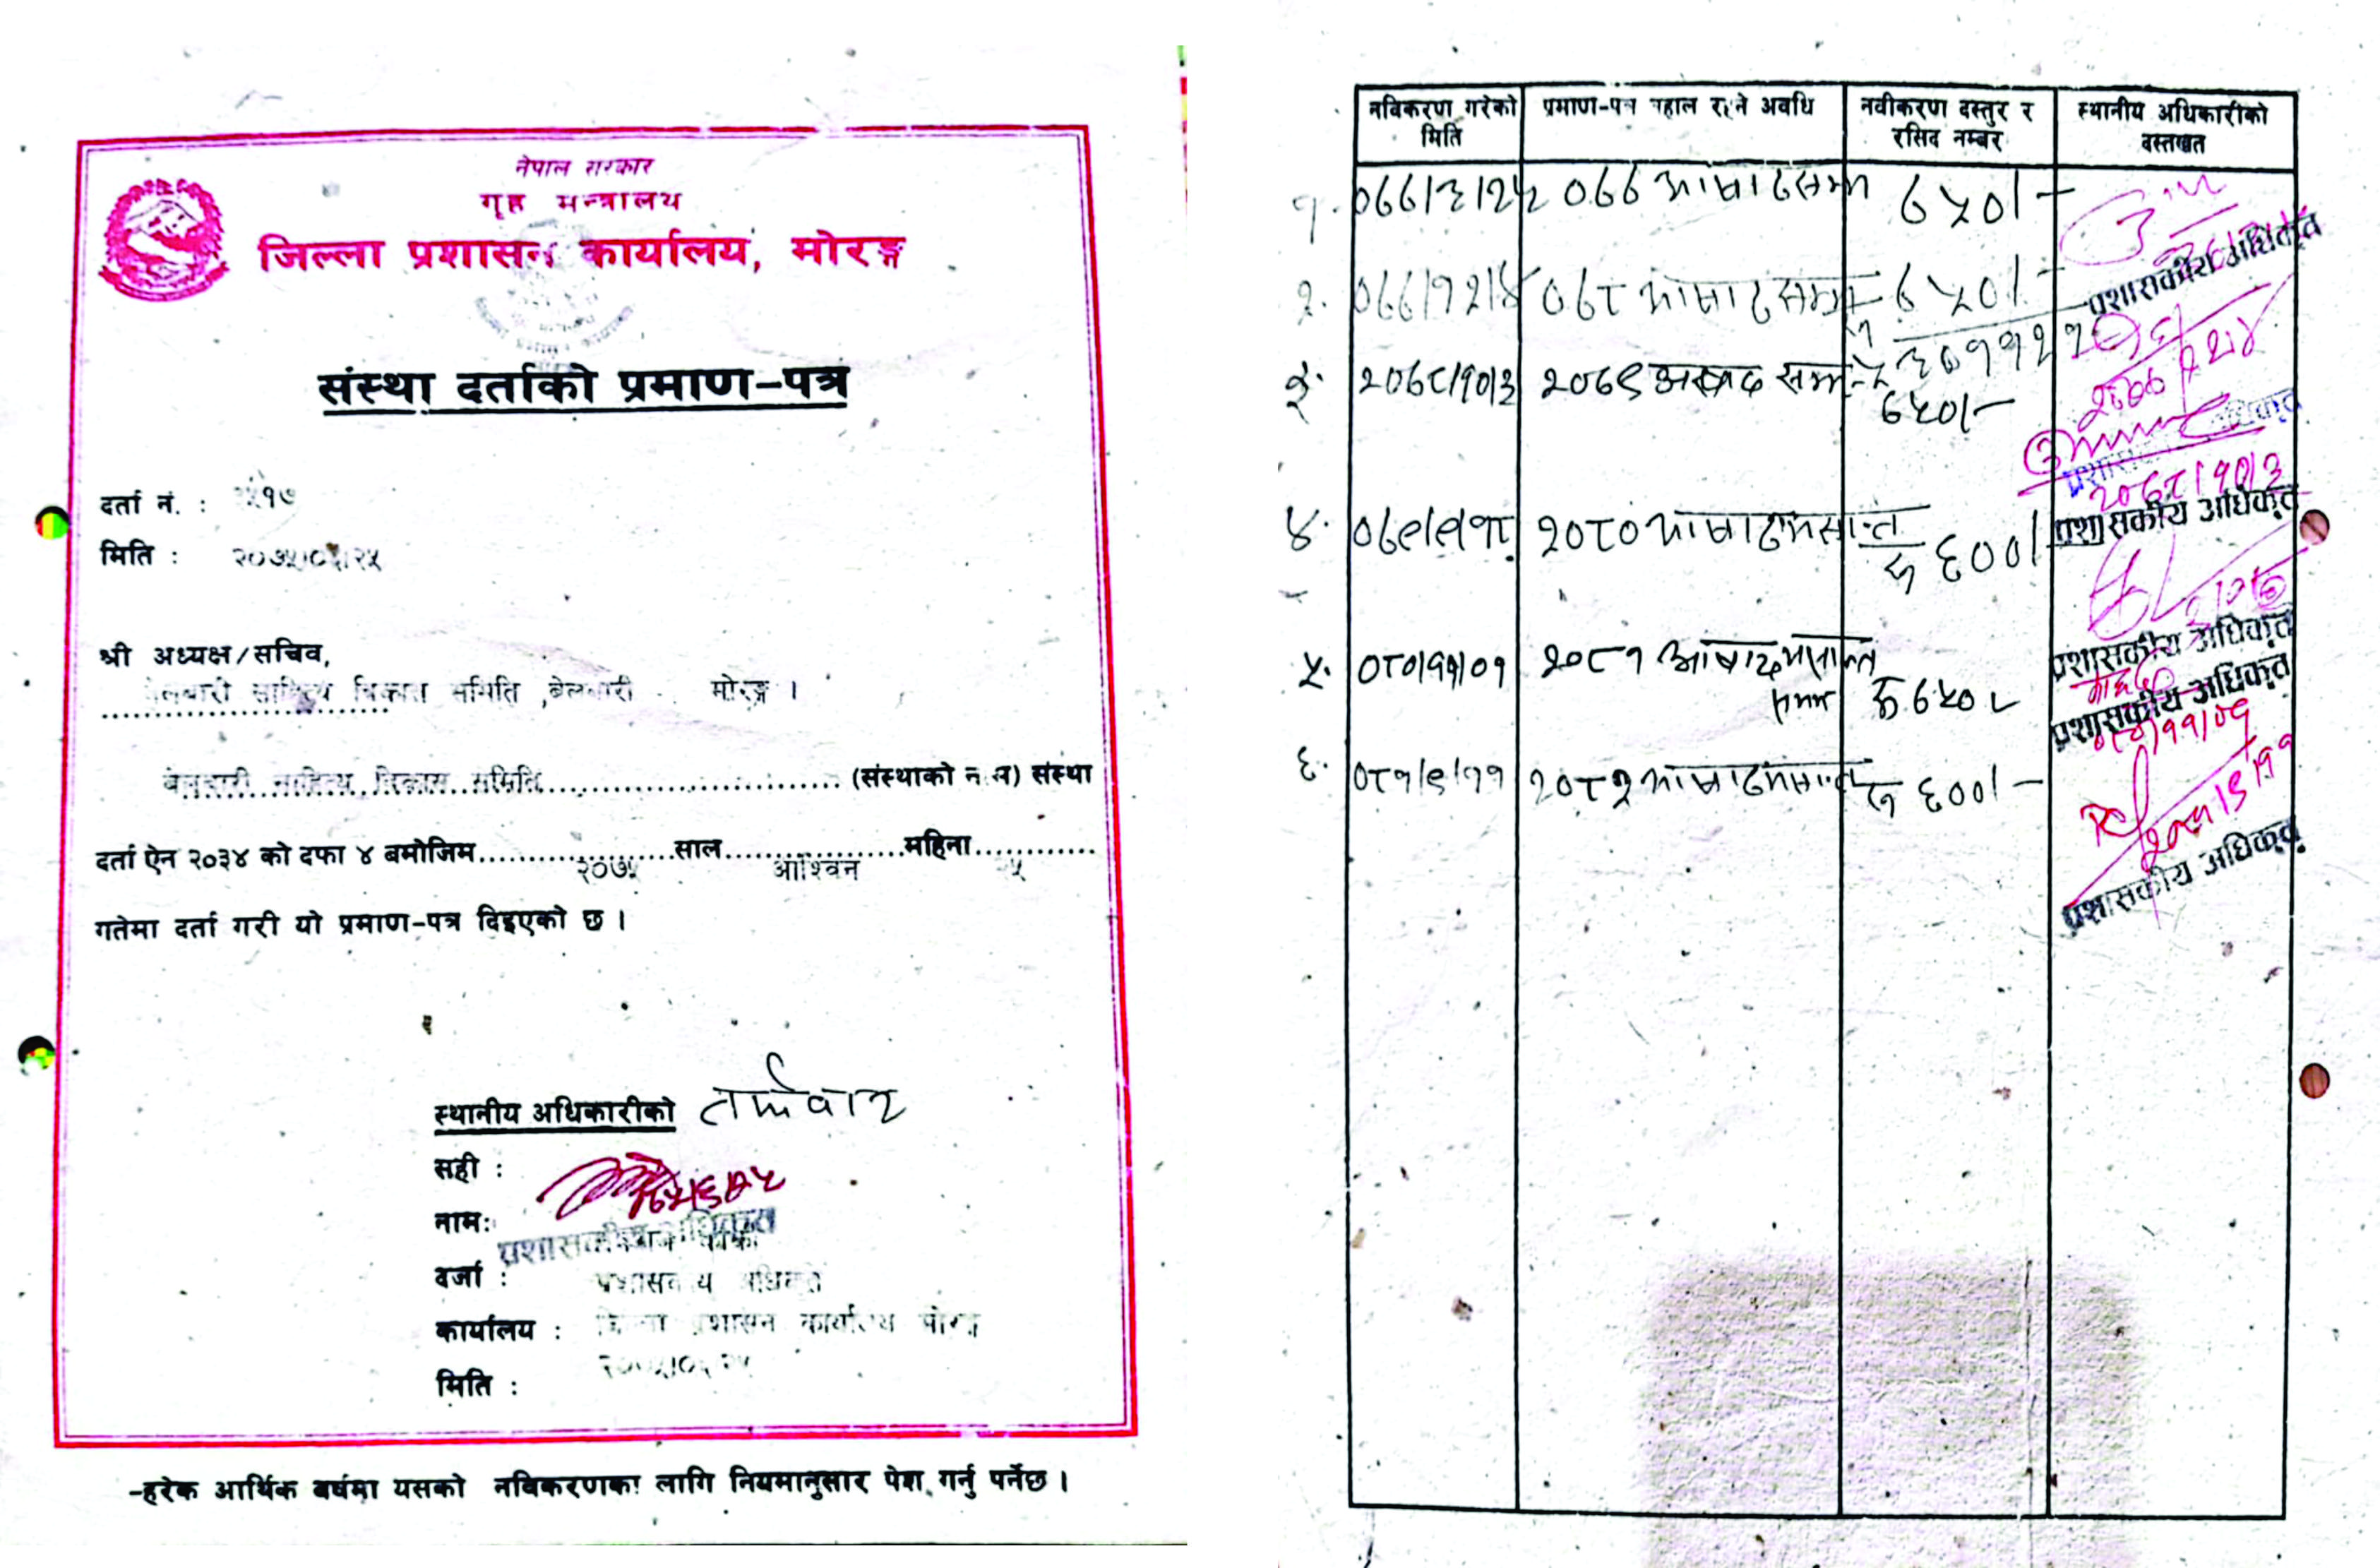 नेपाल सरकार
गृह मन्त्रालय
जिल्ला प्रशासन कार्यालय, मोरङ्ग
संस्था दर्ताको प्रमाण-पत्र
दर्ता नं. :
मिति : २०७५।०६।२५
श्री अध्यक्ष/सचिव,
बेलबारी साहित्य विकास समिति ,बेलबारी मोरङ्ग ।
बेलबारी साहित्य विकास समिति (संस्थाको नाम) संस्था
दर्ता ऐन २०३४ को दफा ४ बमोजिम २०७५ साल आश्विन महिना
गतेमा दर्ता गरी यो प्रमाण-पत्र दिइएको छ ।
स्थानीय अधिकारीको
सही :
नाम:
प्रशासकीय अधिकृत
दर्जा : प्रशासकीय अधिकृत
कार्यालय : जिल्ला प्रशासन कार्यालय मोरङ्ग
मिति :
-हरेक आर्थिक बर्षमा यसको नविकरणका लागि नियमानुसार पेश गर्नु पर्नेछ ।
नविकरण गरेको मिति
प्रमाण-पत्र बहाल रहने अवधि
नवीकरण दस्तुर र रसिद नम्बर
स्थानीय अधिकारीको दस्तखत
१. ०७७।३।२५ ०७७ आषाढ सम्म ७५०।-
प्रशासकीय अधिकृत
२. ०७७।१२।४ ०७८ आषाढ सम्म ७५०।-
३. २०७८।१०।३ २०७९ असाढ सम्म ७५०।-
२०७८।१०।३
प्रशासकीय अधिकृत
४. २०८० आषाढ मसान्त रु ६००।-
प्रशासकीय अधिकृत
५. ०८०।११।०१ २०८१ आषाढ मसान्त सम्म रु ७५०
प्रशासकीय अधिकृत
०८०।११।०१
६. ०८१।९।११ २०८२ आषाढ मसान्त रु ६००।-
२०८१।९।११
प्रशासकीय अधिकृत